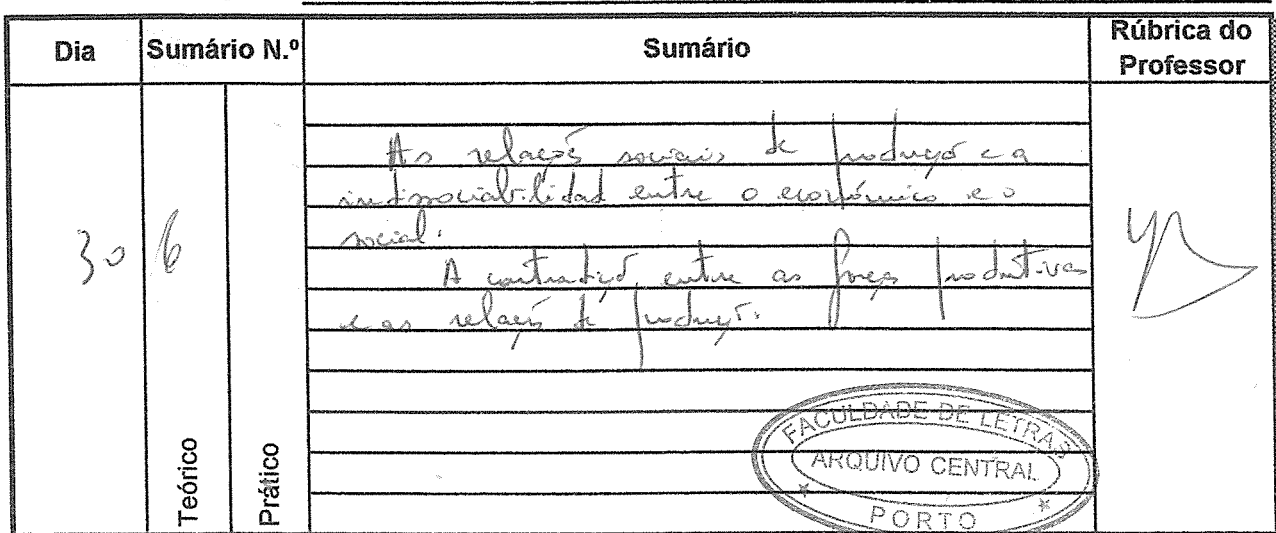 Dia Sumário N.º Sumário Rúbrica do Professor
30 6
As relações sociais de produção e a
indissociabilidade entre o económico e o
social.
A contradição entre as forças produtivas
e as relações de produção.
Teórico Prático
FACULDADE DE LETRAS
ARQUIVO CENTRAL
PORTO